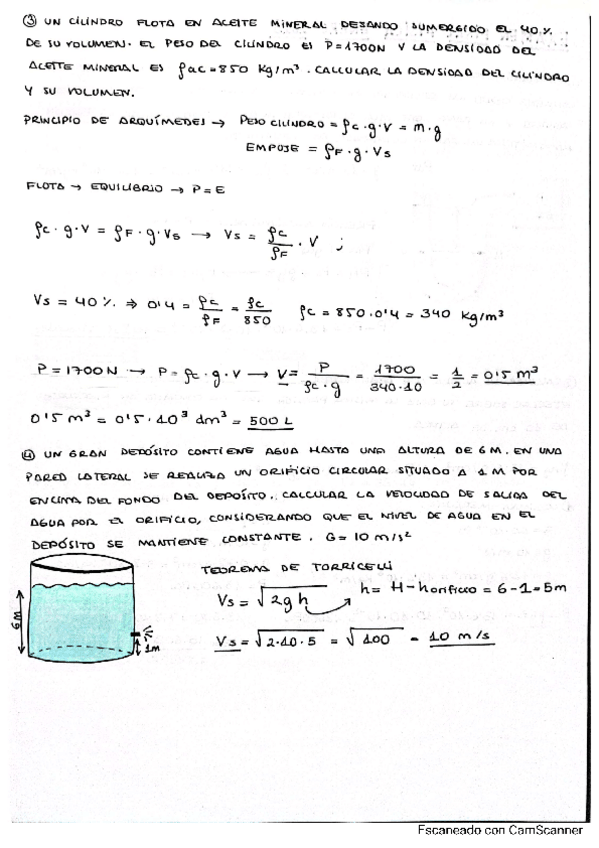 ③ UN CILINDRO FLOTA EN ACEITE MINERAL DEJANDO SUMERGIDO EL 40%
DE SU VOLUMEN. EL PESO DEL CILINDRO ES P=1700N Y LA DENSIDAD DEL
ACEITE MINERAL ES ρac=850 Kg/m³. CALCULAR LA DENSIDAD DEL CILINDRO
Y SU VOLUMEN.
PRINCIPIO DE ARQUÍMEDES → PESO CILINDRO = ρc·g·V = m·g
EMPUJE = ρF·g·Vs
FLOTA → EQUILIBRIO → P=E
ρc·g·V = ρF·g·Vs → Vs = ρc/ρF · V ;
Vs = 40% ⇒ 0'4 = ρc/ρF = ρc/850 ρc = 850·0'4 = 340 Kg/m³
P=1700N → P=ρc·g·V → V = P/ρc·g = 1700/340·10 = 1/2 = 0'5 m³
0'5 m³ = 0'5·10³ dm³ = 500 L
④ UN GRAN DEPÓSITO CONTIENE AGUA HASTA UNA ALTURA DE 6M. EN UNA
PARED LATERAL SE REALIZA UN ORIFICIO CIRCULAR SITUADO A 1M POR
ENCIMA DEL FONDO DEL DEPÓSITO. CALCULAR LA VELOCIDAD DE SALIDA DEL
AGUA POR EL ORIFICIO, CONSIDERANDO QUE EL NIVEL DE AGUA EN EL
DEPÓSITO SE MANTIENE CONSTANTE. G=10 m/s²
TEOREMA DE TORRICELLI
Vs = √2gh h = H-horificio = 6-1=5m
6M
1m
Vs = √2·10·5 = √100 = 10 m/s
Escaneado con CamScanner